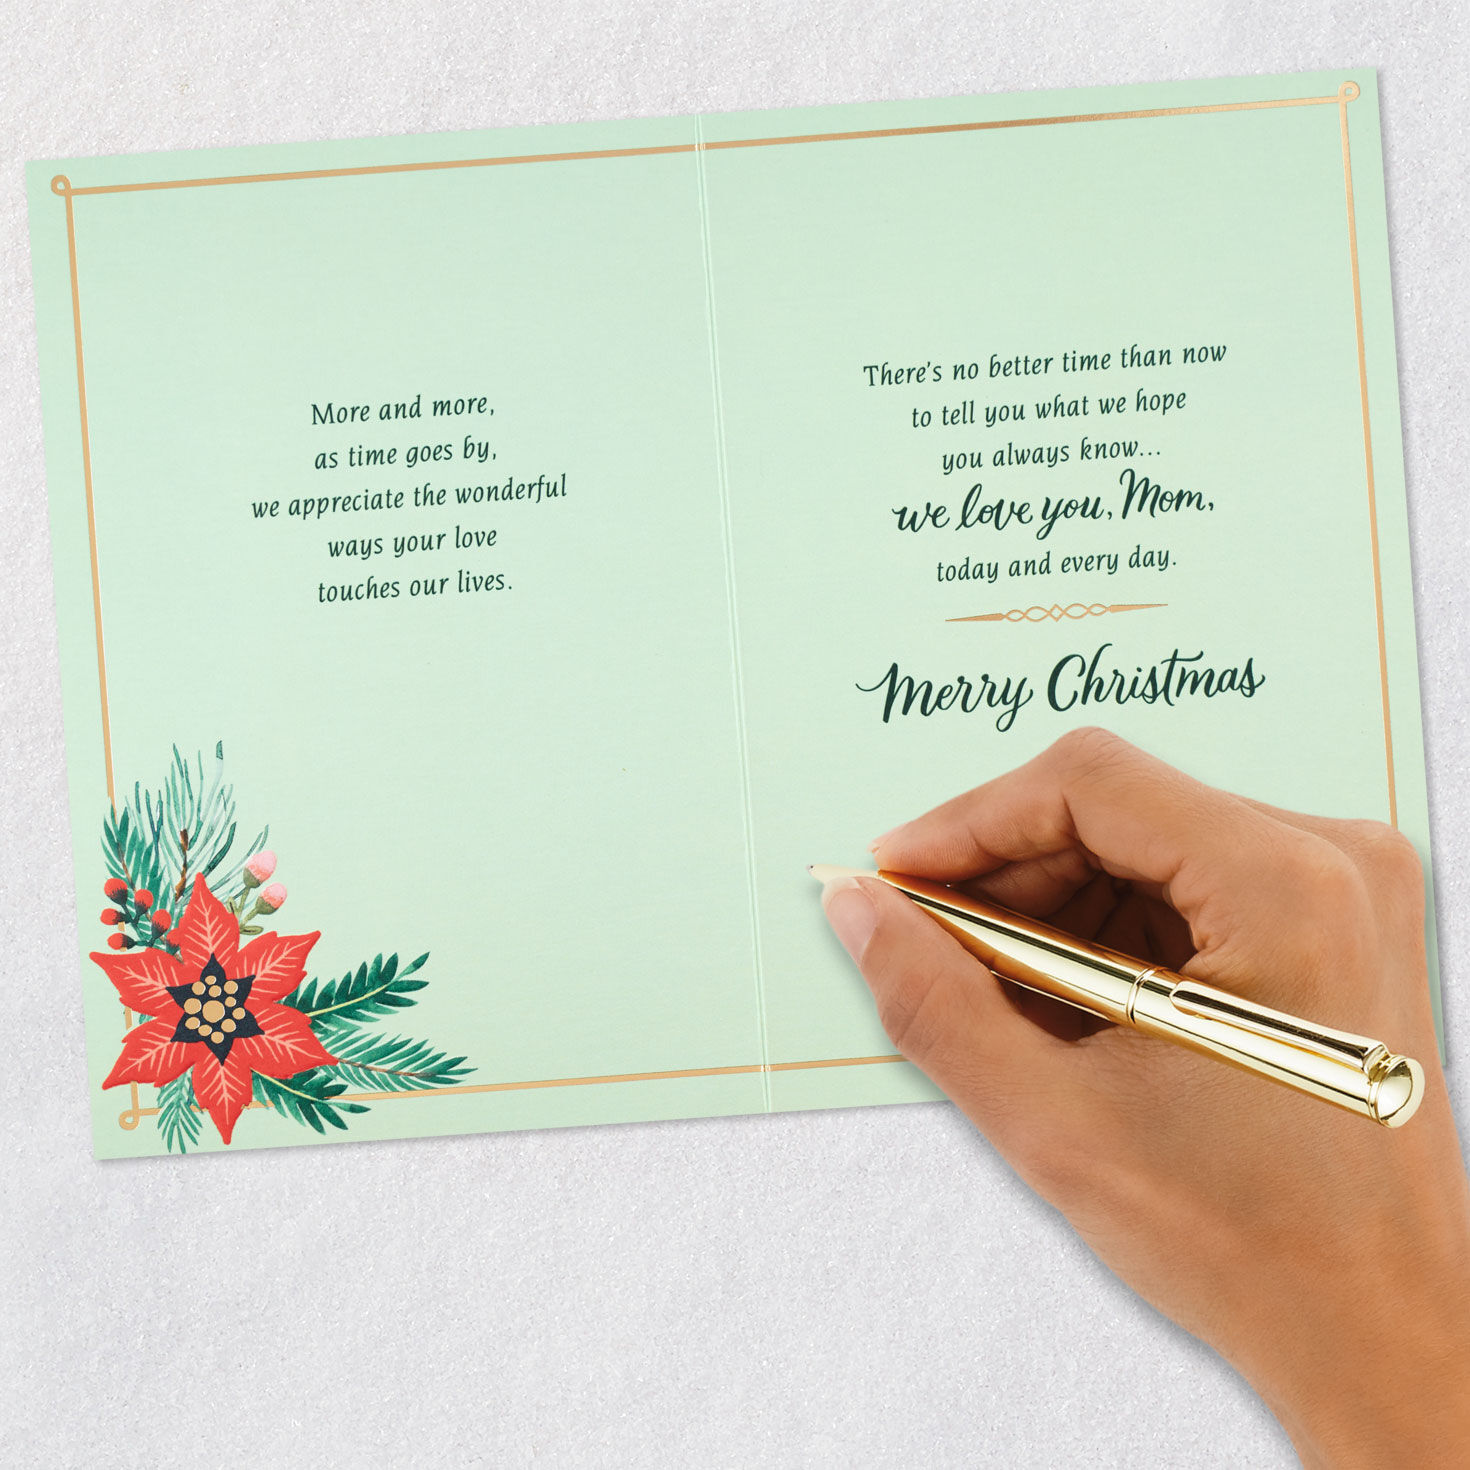 More and more,
as time goes by,
we appreciate the wonderful
ways your love
touches our lives.
There's no better time than now
to tell you what we hope
you always know...
we love you, Mom,
today and every day.
Merry Christmas